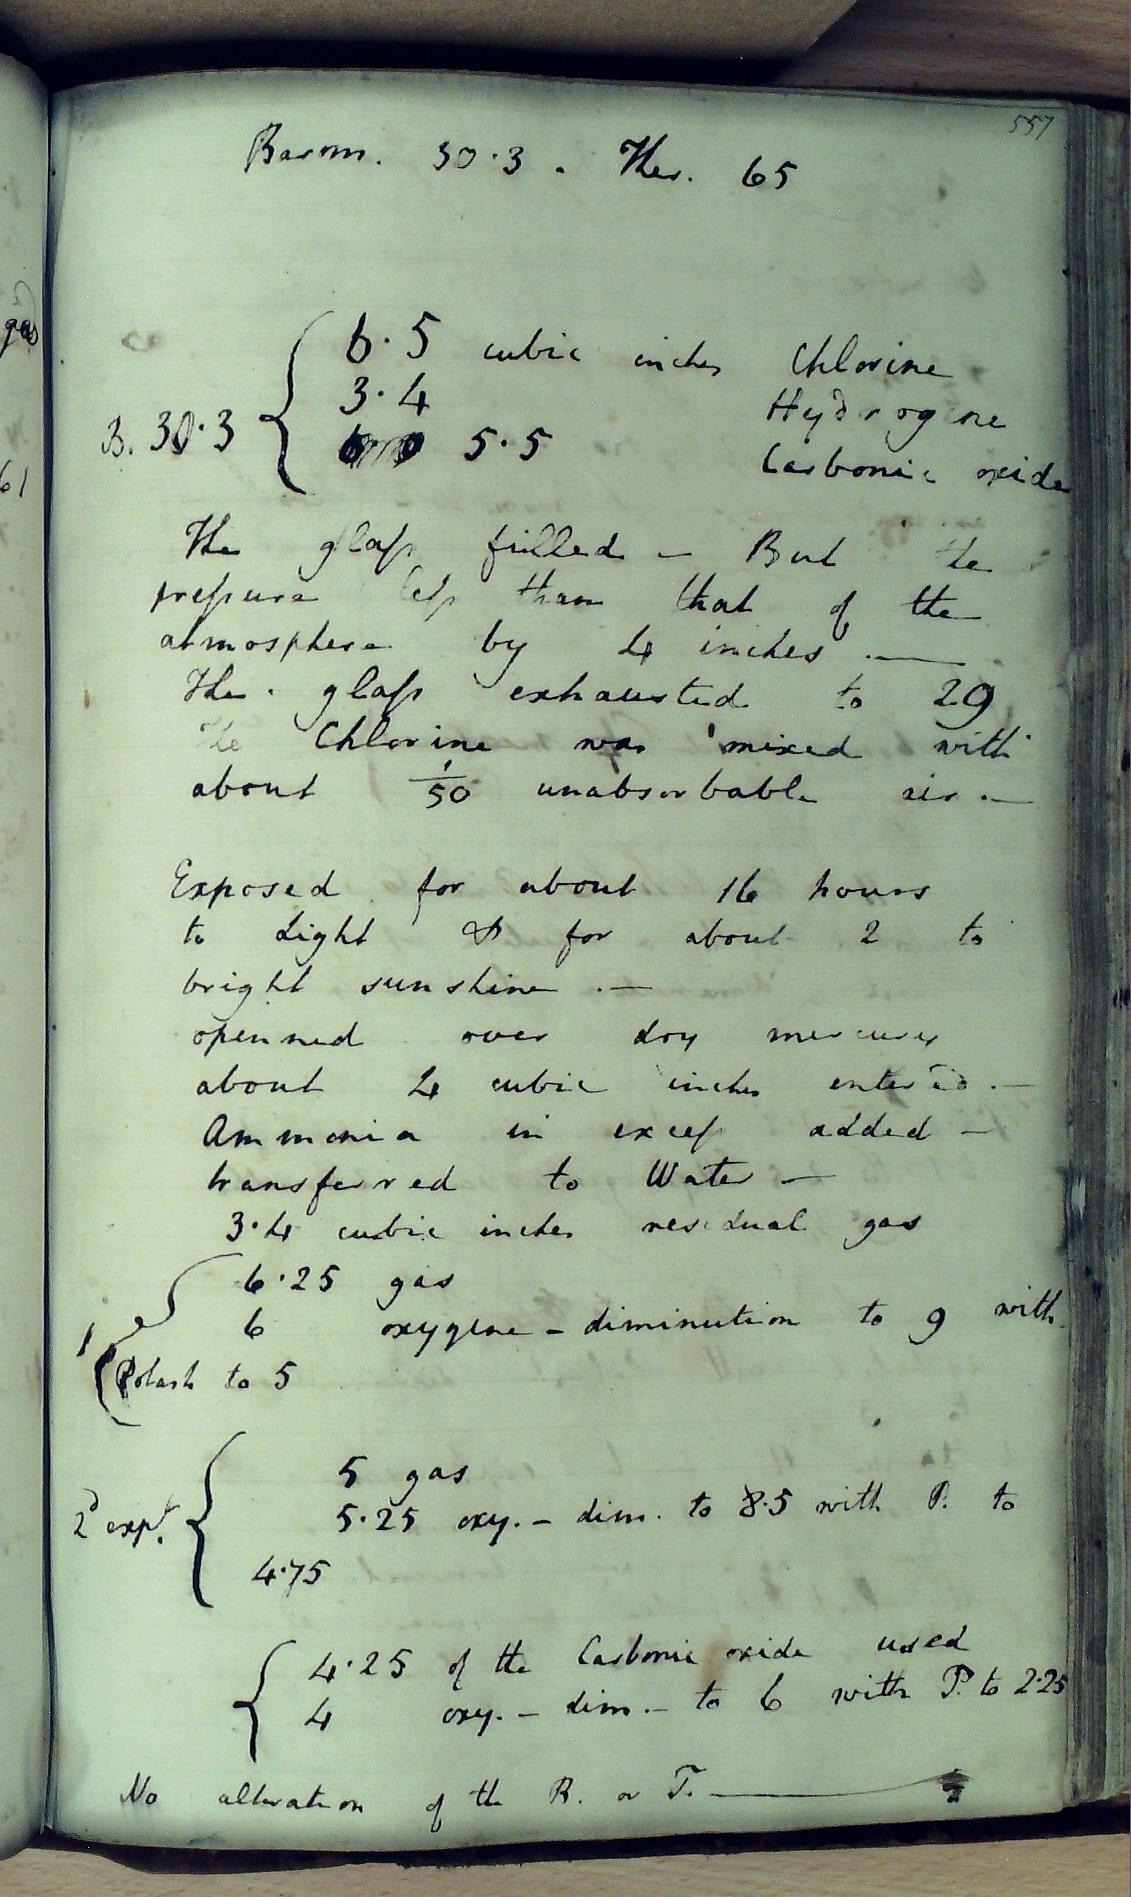 557
Barom. 30.3. Ther. 65
6.5 cubic inches Chlorine
3.4 Hydrogene
B. 30.3
5.5 Carbonic oxide
The glaſs filled — But the
preſsure leſs than that of the
atmosphere by 4 inches. —
The glaſs exhausted to 29
The Chlorine was mixed with
about 1/50 unabsorbable air. —
Exposed for about 16 hours
to Light & for about 2 to
bright sunshine. —
openned over dry mercury
about 4 cubic inches entered. —
Ammonia in exceſs added —
transferred to Water —
3.4 cubic inches residual gas
6.25 gas
1 6 oxygene — diminution to 9 with
Potash to 5
5 gas
2d expt. 5.25 oxy. — dim. to 8.5 with P. to
4.75
4.25 of the Carbonic oxide used
4 oxy. — dim. — to 6 with P. to 2.25
No alteration of the B. or T. —
gas
61